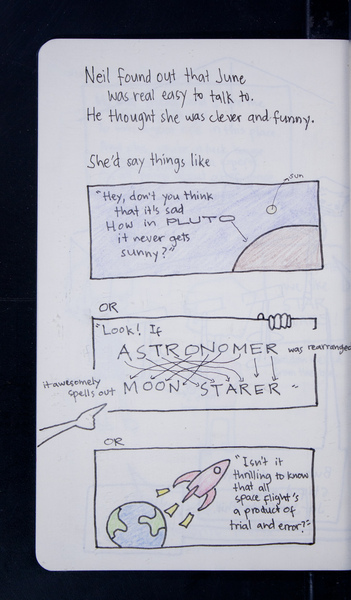 Neil found out that June
was real easy to talk to.
He thought she was clever and funny.
She'd say things like
sun
"Hey, don't you think
that it's sad
How in PLUTO
it never gets
sunny?"
OR
"Look! If
ASTRONOMER was rearranged
it awesomely
spells out MOON STARER"
OR
"Isn't it
thrilling to know
that all
space flight's
a product of
trial and error?"